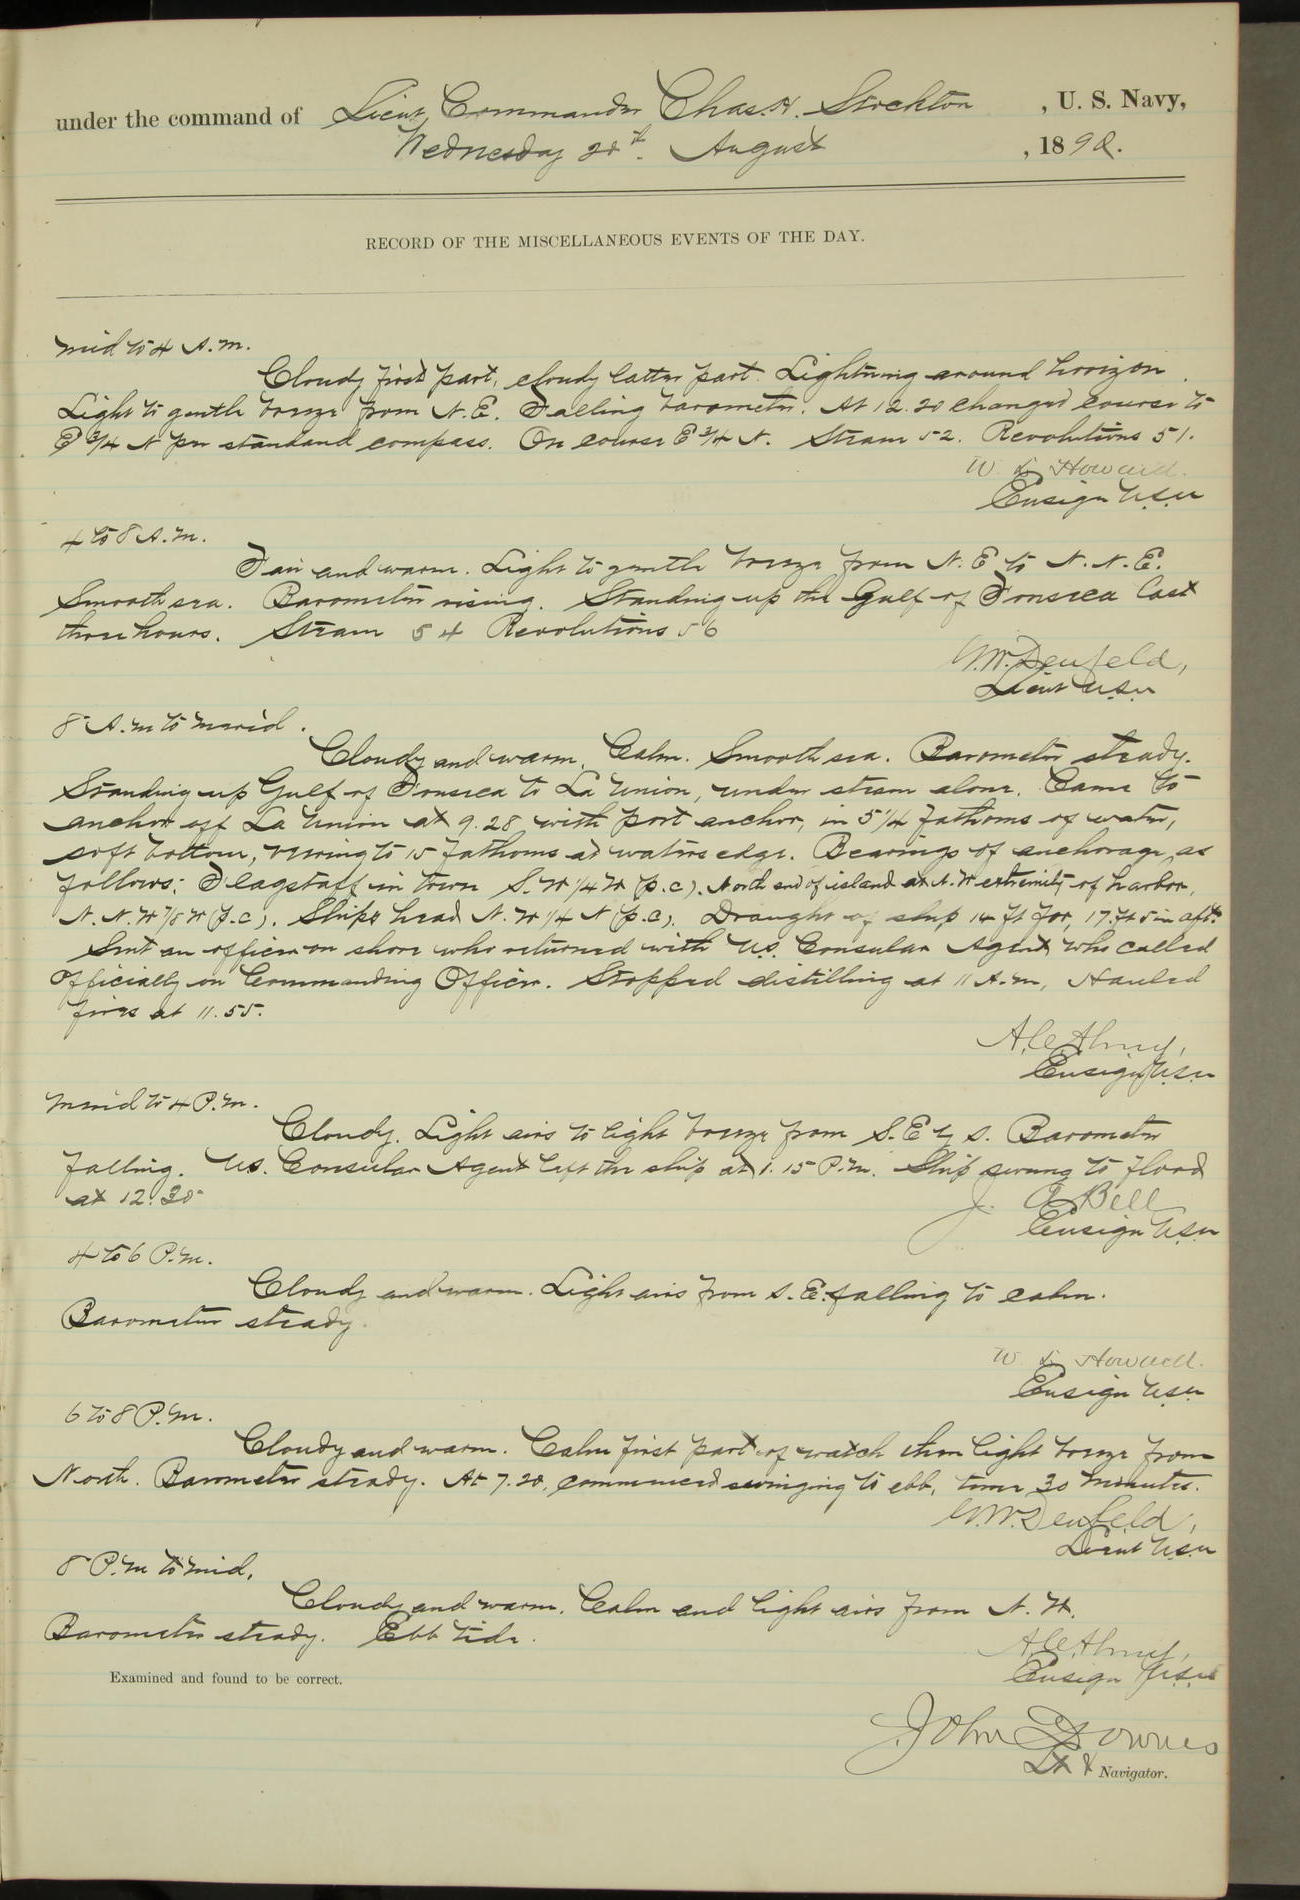 under the command of Lieut Commander Chas. H. Stockton, U. S. Navy,
Wednesday 20th. August, 1890.
RECORD OF THE MISCELLANEOUS EVENTS OF THE DAY.
Mid to 4 A.M.
Cloudy first part, cloudy latter part. Lightning around horizon.
Light to gentle breeze from N.E. Falling barometer. At 12.20 changed course to
E 3/4 N per standard compass. On course E 3/4 N. Steam 52. Revolutions 51.
W. L. Howard.
Ensign U.S.N
4 to 8 A.M.
Fair and warm. Light to gentle breeze from N.E to N.N.E.
Smooth sea. Barometer rising. Standing up the Gulf of Fonseca last
three hours. Steam 54 Revolutions 56
G.W. Denfeld,
Lieut U.S.N
8 A.M to Merid.
Cloudy and warm. Calm. Smooth sea. Barometer steady.
Standing up Gulf of Fonseca to La Union, under steam alone. Came to
anchor off La Union at 9.28 with port anchor, in 5 1/4 fathoms of water,
soft bottom, veering to 15 fathoms at waters edge. Bearings of anchorage as
follows: Flagstaff in town S.W 1/4 W (p.c). North end of island at N.W extremity of harbor,
N.N.W 7/8 W (p.c). Ships head N.W 1/4 N (p.c). Draught of ship 14 ft for, 17 ft 5 in aft.
Sent an officer on shore who returned with U.S. Consular Agent who called
Officially on Commanding Officer. Stopped distilling at 11 A.M, Hauled
fires at 11.55.
A.C. Almy,
Ensign U.S.N
Merid to 4 P.M.
Cloudy. Light airs to light breeze from S.E by S. Barometer
falling. U.S. Consular Agent left the ship at 1.15 P.M. Ship swung to flood
at 12.30
J. A Bell
Ensign U.S.N
4 to 6 P.M.
Cloudy and warm. Light airs from S.E. falling to calm.
Barometer steady.
W. L. Howard.
Ensign U.S.N
6 to 8 P.M.
Cloudy and warm. Calm first part of watch then light breeze from
North. Barometer steady. At 7.20, commenced swinging to ebb, time 30 minutes.
G.W. Denfeld,
Lieut U.S.N
8 P.M to Mid.
Cloudy and warm. Calm and light airs from N.W.
Barometer steady. Ebb tide.
A.C. Almy,
Ensign U.S.N
Examined and found to be correct.
John Downes
Lt & Navigator.